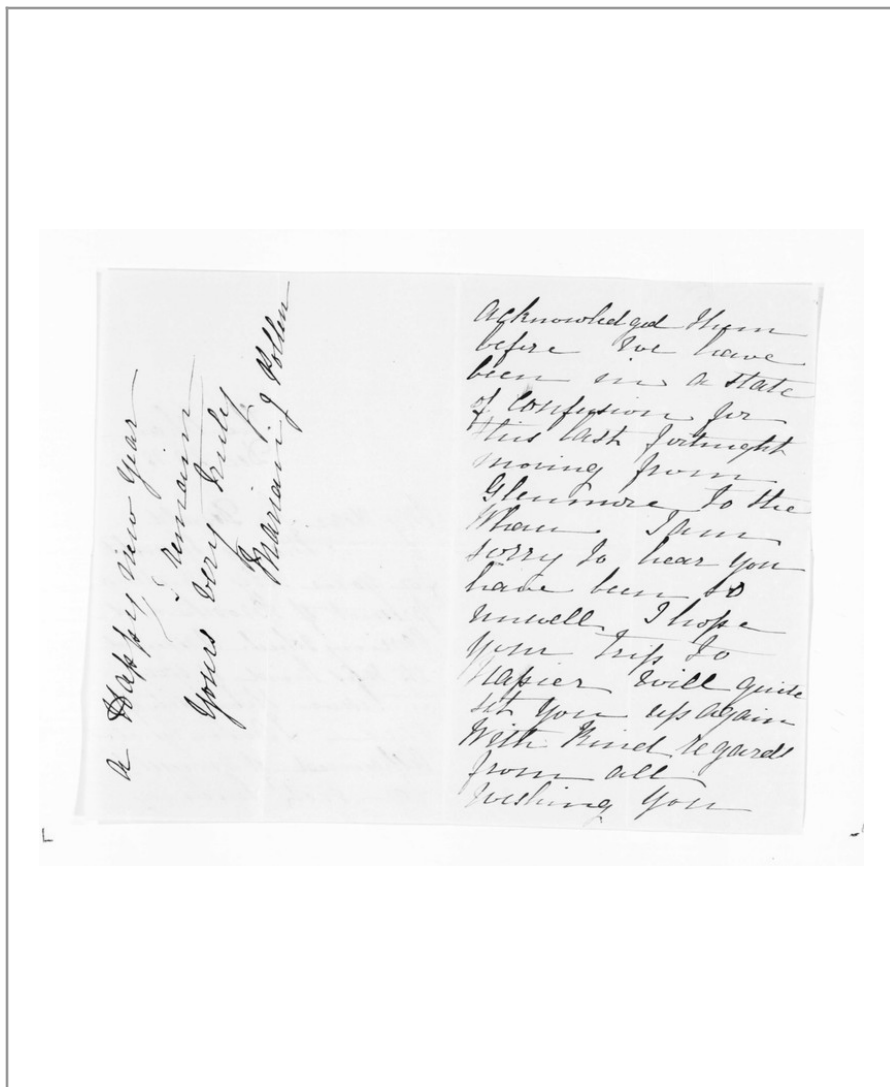 acknowledged them
before We have
been in a state
of confusion for
this last fortnight
moving from
Glenmore to the
Whau. I am
sorry to hear you
have been so
unwell. I hope
your trip to
Napier will quite
set you up again
With Kind regards
from all
Wishing you
a Happy New Year
I remain
Yours very truly
Marian J Pollen